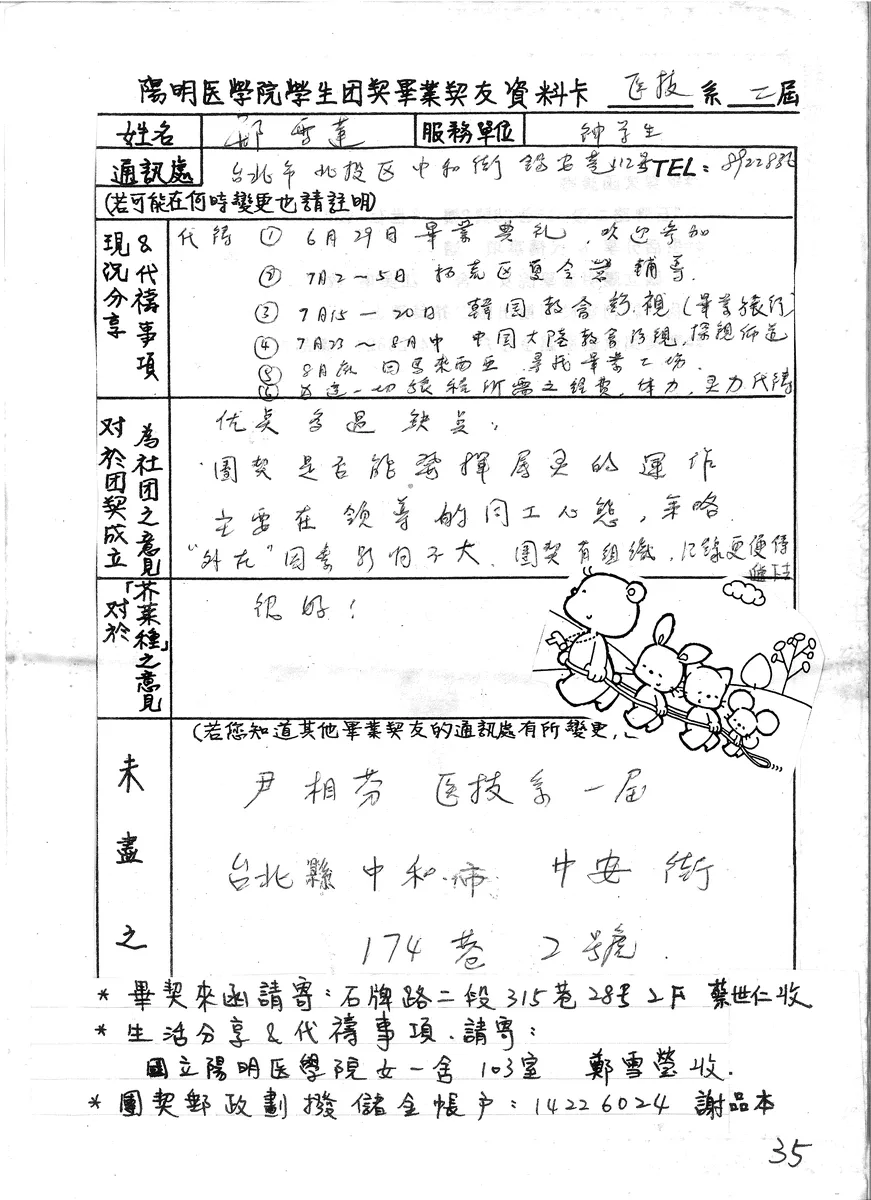 陽明医學院學生团契畢業契友資料卡 医技 系 二屆
姓名 鄭雪蓮 服務單位 神学生
通訊處 台北市北投区中和街 巷512号 TEL: 8922836
(若可能在何時變更也請註明)
現況分享 & 代禱事項
代禱 ① 6月29日畢業典礼，欢迎参加
② 7月2～5日 区夏令營輔导.
③ 7月15－20日 韓囯教會訪視(畢業旅行)
④ 7月23～8月中 中囯大陸教會訪視,探親佈道
⑤ 8月底 回馬來西亚 尋找畢業工場.
⑥ 为這一切旅程所需之經費,体力,灵力代禱
对於团契成立為社团之意見
优点多過缺点,
團契是否能發揮属灵的運作
主要在領導的同工心態,策略.
"外在"因素影响不大.團契有組織,记錄更便傳
对於「芥菜種」之意見
很好!
未盡之
(若您知道其他畢業契友的通訊處有所變更,
尹相芬 医技系一届
台北縣中和市 中安街
174巷 2號
* 畢契來函請寄:石牌路二段315巷28号2F 蔡世仁收
* 生活分享&代禱事項.請寄:
國立陽明医學院女一舍 103室 鄭雪瑩收.
* 團契郵政劃撥儲金帳戶:14226024 謝品本
35